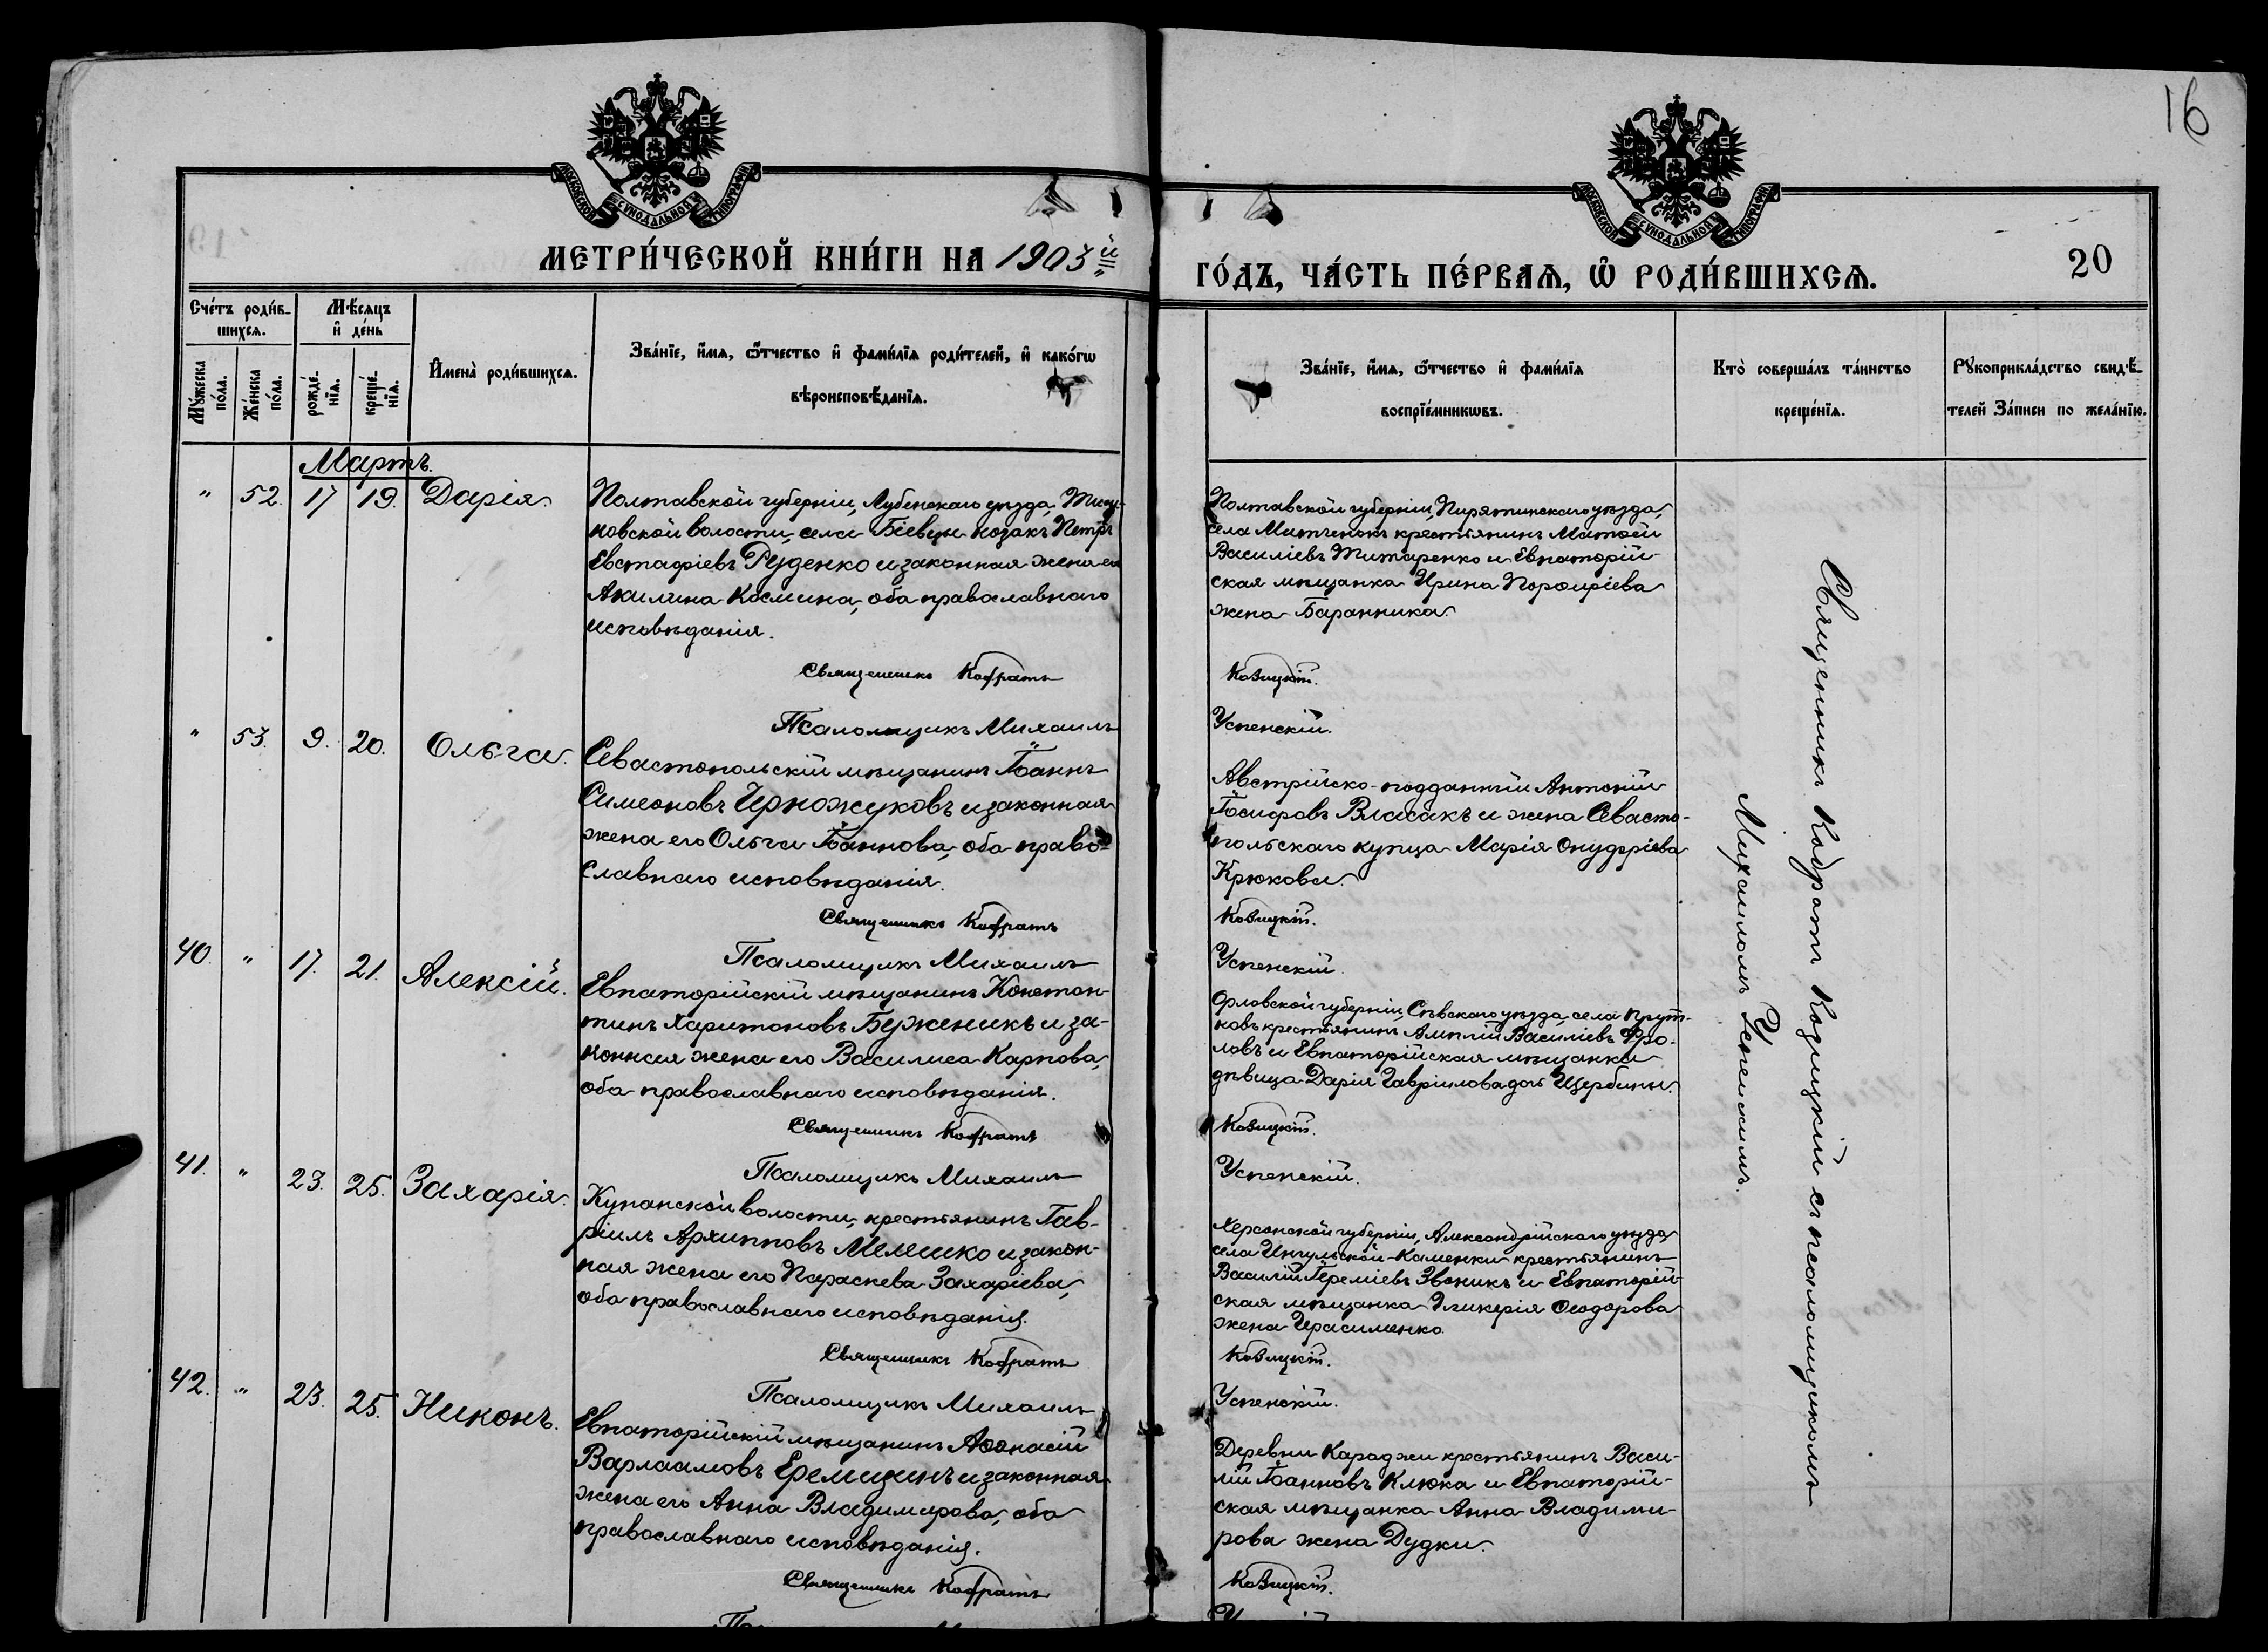 16
МОСКОВСКОЙ СѴНОДАЛЬНОЙ ТИПОГРАФІИ
МОСКОВСКОЙ СѴНОДАЛЬНОЙ ТИПОГРАФІИ
МЕТРИ́ЧЕСКОЙ КНИ́ГИ НА 1903й
ГО́ДЪ, ЧА́СТЬ ПЕ́РВАѦ, Ѡ РОДИ́ВШИХСѦ.
20
Сче́тъ роди́в-
шихсѧ.
Мѣ́сѧцъ
и҆ де́нь
Мꙋ́жеска
по́ла.
Же́нска
по́ла.
рожде́-
нїѧ.
креще́-
нїѧ.
И҆мена̀ роди́вшихсѧ.
Зва́нїе, и҆́мѧ, ѻ҆́тчество и҆ фами́лїѧ роди́телей, и҆ како́гѡ
вѣроисповѣ́данїѧ.
Зва́нїе, и҆́мѧ, ѻ҆́тчество и҆ фами́лїѧ
воспрїе́мникѡвъ.
Кто̀ соверша́лъ та́инство
креще́нїѧ.
Рꙋкоприкла́дство свидѣ́-
телей За́писи по жела́нїю.
Мартъ.
" 52. 17 19. Дарія.
Полтавской губерніи, Лубенскаго уѣзда,
новской волости, села Біевцы козакъ Петръ
Евстафіевъ Руденко и законная жена его
Акилина Космина, оба православнаго
исповѣданія.
Священникъ Кодратъ
Псаломщикъ Михаилъ
Полтавской губерніи, Пирятинскаго уѣзда,
села Митченокъ крестьянинъ Матѳей
Василіевъ Титаренко и Евпаторій-
ская мѣщанка Ирина Порфиріева
жена Баранника.
Козицкій.
Успенскій.
" 53. 9. 20. Ольга.
Севастопольскій мѣщанинъ Іоаннъ
Симеоновъ Чрножуковъ и законная
жена его Ольга Іоаннова, оба право-
славнаго исповѣданія.
Священникъ Кодратъ
Псаломщикъ Михаилъ
Австрійско-подданный Антоній
Іосифовъ Власакъ и жена Севасто-
польскаго купца Марія Онуфріева
Крюкова.
Козицкій.
Успенскій.
40. " 17. 21. Алексій.
Евпаторійскій мѣщанинъ Констан-
тинъ Харитоновъ Берженикъ и за-
конная жена его Василиса Карпова,
оба православнаго исповѣданія.
Священникъ Кодратъ
Псаломщикъ Михаилъ
Орловской губерніи, Сѣвскаго уѣзда, села Прут-
ковъ крестьянинъ Василіевъ Фро-
ловъ и Евпаторійская мѣщанка
дѣвица Дарія Гавріилова дочь Щербины.
Козицкій.
Успенскій.
41. " 23. 25. Захарія.
Купанской волости, крестьянинъ Гав-
ріилъ Архипповъ Мемешко и закон-
ная жена его Параскева Захаріева,
оба православнаго исповѣданія.
Священникъ Кодратъ
Псаломщикъ Михаилъ
Херсонской губерніи, Александрійскаго уѣзда,
села Ингульской-Каменки крестьянинъ
Василій Іереміевъ Звоникъ и Евпаторій-
ская мѣщанка Гликерія Ѳеодорова
жена Ирасименко.
Козицкій.
Успенскій.
42. " 23. 25. Никонъ.
Евпаторійскій мѣщанинъ Аѳанасій
Варлаамовъ Еремизинъ и законная
жена его Анна Владимирова, оба
православнаго исповѣданія.
Священникъ Кодратъ
Деревни Караджи крестьянинъ Васи-
лій Іоанновъ Клюка и Евпаторій-
ская мѣщанка Анна Владими-
рова жена Дудки.
Козицкій.
Священникъ Кодратъ Козицкій съ псаломщикомъ
Михаиломъ Успенскимъ.